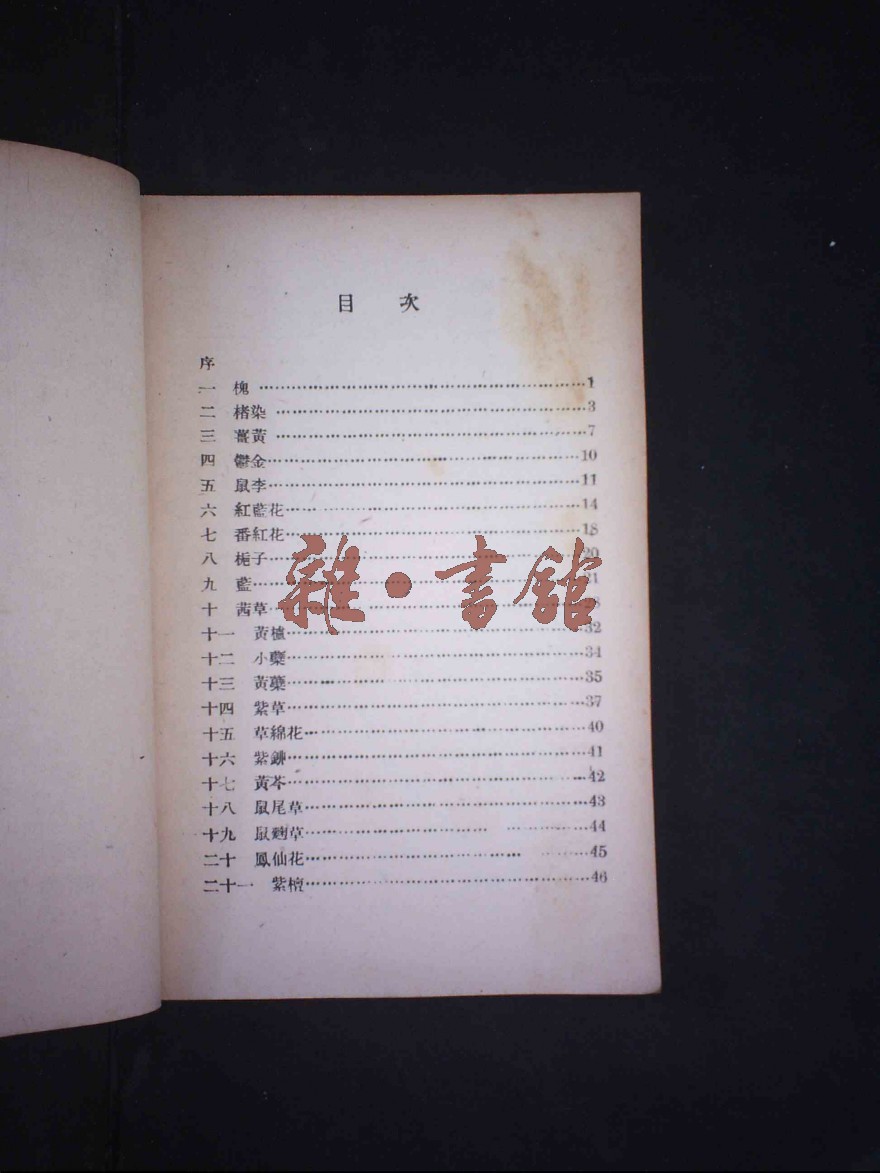 目 次
序
一 槐 1
二 楮染 3
三 薑黃 7
四 鬱金 10
五 鼠李 11
六 紅藍花 14
七 番紅花 18
八 梔子 20
九 藍 21
十 茜草
十一 黃櫨 32
十二 小蘗 34
十三 黃蘗 35
十四 紫草 37
十五 草綿花 40
十六 紫鉚 41
十七 黃芩 42
十八 鼠尾草 43
十九 鼠麴草 44
二十 鳳仙花 45
二十一 紫檀 46
雜·書館